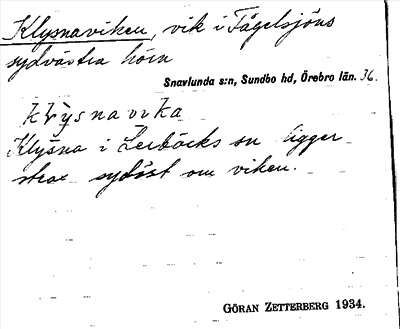 Klysnaviken, vik i Fågelsjöns
sydvästra hörn
Snavlunda s:n, Sundbo hd, Örebro län. 36.
klysnavika
Klysna i Lerbäcks sn ligger
strax sydöst om viken.
GÖRAN ZETTERBERG 1934.